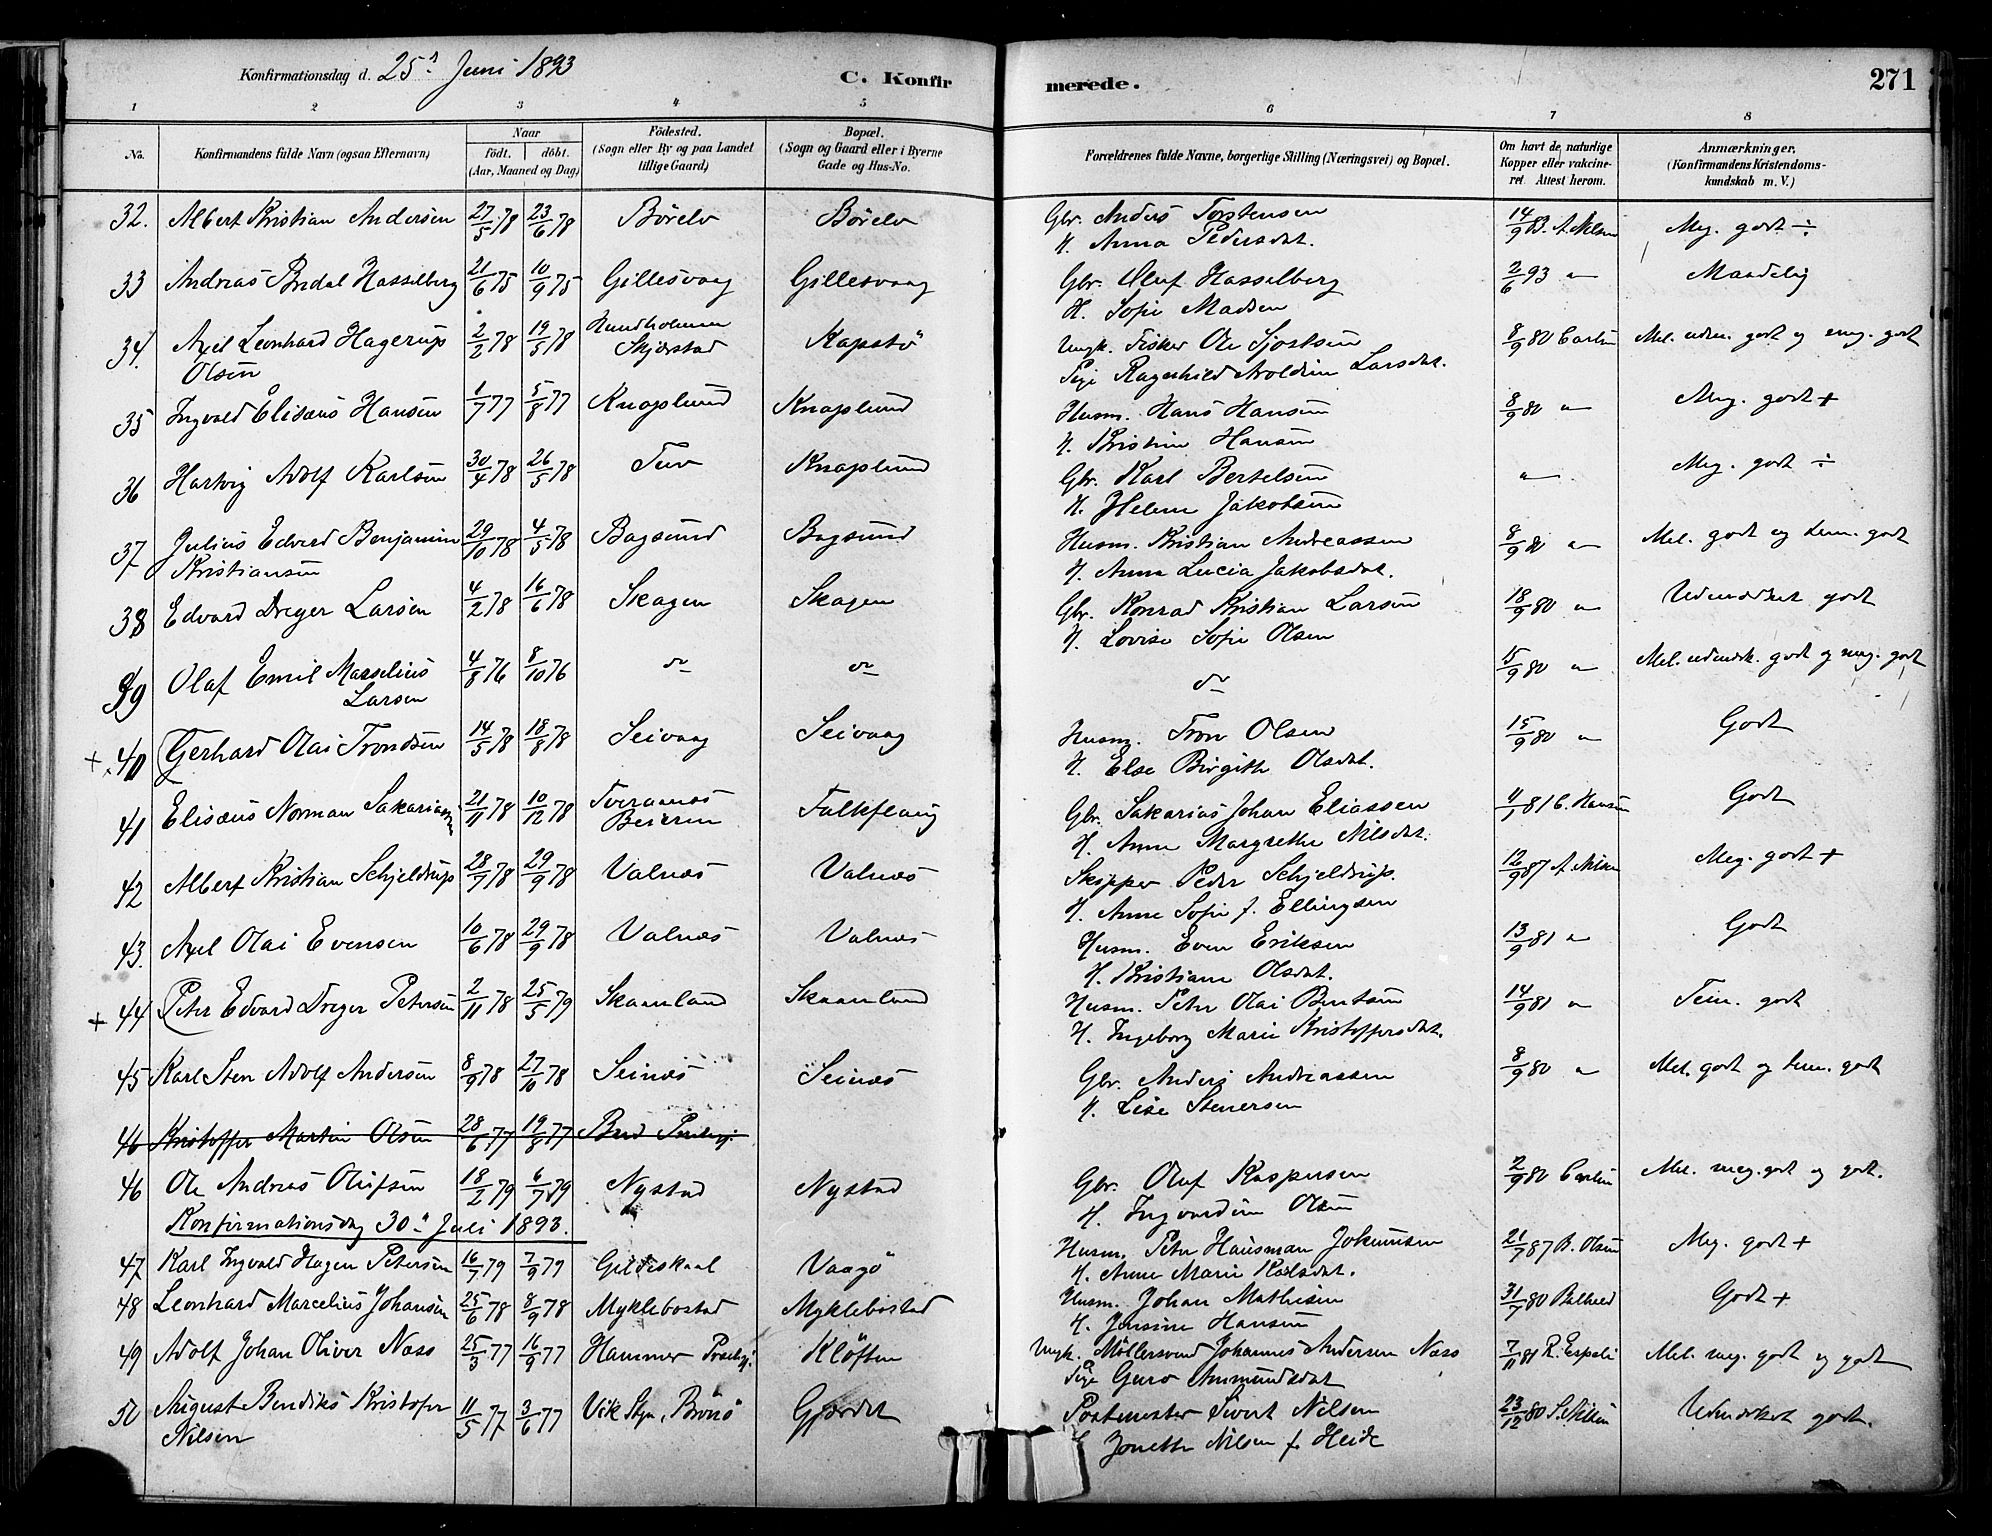 Konfirmationsdag d. 25de Juni 1893
C. Konfirmerede.
271
1 2 3 4 5 6 7 8
No.
Konfirmandens fulde Navn (ogsaa Efternavn)
Naar
födt. döbt.
(Aar, Maaned og Dag)
Födested.
(Sogn eller By og paa Landet
tillige Gaard)
Bopæl.
(Sogn og Gaard eller i Byerne
Gade og Hus-No.
Forældrenes fulde Navne, borgerlige Stilling (Næringsvei) og Bopæl.
Om havt de naturlige
Kopper eller vakcine-
ret. Attest herom.
Anmærkninger.
(Konfirmandens Kristendoms-
kundskab m. V.)
32. Albert Kristian Andersen 27/5 78 23/6 78 Börelv Börelv Gbr. Anders Torstensen 14/9 83. A. Nilsen Meg. godt ÷
H. Anna Pedersdat.
33 Andreas Bredal Hasselberg 21/6 75 10/9 75 Gillesvaag Gillesvaag Gbr. Oluf Hasselberg 2/6 93 Maadelig
H. Sofie Madsen
34. Axel Leonhard Hagerup Olsen 2/2 78 19/5 78 Hundholmen Skjerstad Kapstö Ungk. Fisker Ole Sjostsen 8/9 80 Carlin Mel. udm. godt og meg. godt
Pige Ragnhild Aroldine Larsdat.
35 Ingvald Elisæus Hansen 1/7 77 5/8 77 Knaplund Knaplund Husm. Hans Hansen 8/9 80 Meg. godt +
H. Kristine Hansen
36 Hartvig Adolf Karlsen 30/4 78 26/5 78 Tuv Knaplund Gbr. Karl Bertelsen Meg. godt ÷
H. Helene Jakobsen
37 Julius Edvard Benjamin Kristiansen 29/10 78 4/5 78 Bogsund Bogsund Husm. Kristian Andreassen 8/9 80 Mel. godt og tem. godt
H. Anna Lucia Jakobsdat.
38 Edvard Dreyer Larsen 4/2 78 16/6 78 Skagen Skagen Gbr. Konrad Kristian Larsen 18/9 80 Udmærket godt
H. Lovise Sofie Olsen
39 Olaf Emil Marselius Larsen 4/8 76 8/10 76 do do do 15/9 80 Mel. udmærk. godt og meg. godt
+ 40 Gerhard Olai Trondsen 14/5 78 18/8 78 Seivaag Seivaag Husm. Tron Olsen 15/9 80 Godt
H. Else Birgith Olsdat.
41 Elisæus Norman Sakariassen 21/11 78 10/12 78 Tveraanes Beieren Falkflaug Gbr. Sakarias Johan Eliassen 81 C. Hansen Godt
H. Anne Margrethe Nilsdat.
42 Albert Kristian Schjeldrup 28/7 78 29/9 78 Valnæs Valnæs Skipper Peder Schjeldrup. 12/9 87 A. Nilsen Meg. godt +
H. Anne Sofie f. Ellingsen
43. Axel Olai Evensen 10/6 78 29/9 78 Valnæs Valnæs Husm. Even Eriksen 13/9 81 Godt
H. Kristiane Olsdat.
+ 44 Peter Edvard Dreyer Petersen 2/11 78 25/5 79 Skaanland Skaanland Husm. Peter Olai Bentsen 14/9 81 Tem. godt
H. Ingeborg Marie Kristoffersdat.
45 Karl Sten Adolf Andersen 8/9 78 27/10 78 Seines Seines Gbr. Anders Andreassen 8/9 80 Mel. godt og tem. godt
H. Lise Stenersen
46 Kristoffer Martin Olsen 28/6 77 19/8 77 Bud Præstegj.
46 Ole Andreas Olufsen 18/2 79 6/7 79 Nystad Nystad Gbr. Oluf Kaspersen 2/9 80 Carlin Mel. meg. godt og godt.
H. Ingvardine Olsen
Konfirmationsdag 30te Juli 1893.
47 Karl Ingvald Hagen Petersen 16/7 79 7/9 79 Gildeskaal Vaagö Husm. Peter Hausman Jokumsen 21/7 87 B. Olsen Meg. godt +
H. Anne Marie Karlsdat.
48 Leonhard Marcelius Johansen 25/6 78 8/9 78 Myklebostad Myklebostad Husm. Johan Mathisen 31/7 80 Godt +
H. Jensine Hansen
49 Adolf Johan Oliver Næss 25/3 77 16/9 77 Hammer Præstegj. Klöften Ungk. Möllersvend Johannes Andersen Næss 7/11 81 R. Espeli Mel. meg. godt og godt
Pige Guro Ammundsdat
50 August Bendiks Kristofer Nilsen 11/5 77 3/6 77 Vik Sogn, Brönö Gjærdet Postmester Sivert Nilsen 23/12 80 S. Nilsen Udmærket godt.
H. Jonette Nilsen f. Heide